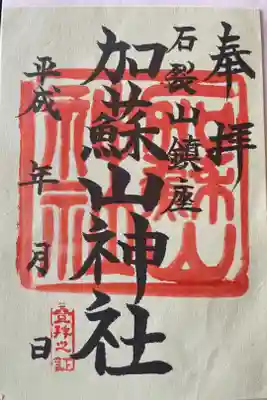 奉拝
石裂山鎮座
加蘇山神社
平成 年 月 日
登拝之証